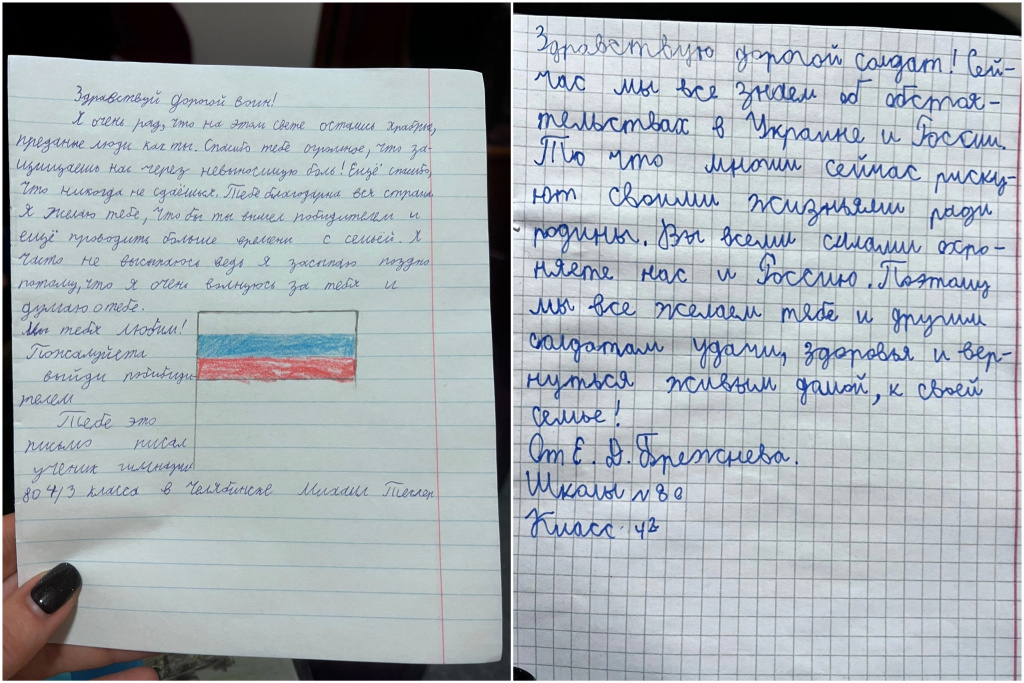 Здравствуй дорогой воин!
Я очень рад, что на этом свете остались храбрые,
преданные люди как ты. Спасибо тебе огромное, что за-
щищаешь нас через невыносимую боль! Ещё спасибо,
что никогда не сдаёшься. Тебе благодарна вся страна
Я желаю тебе, что бы ты вышел победителем и
ещё проводить больше времени с семьёй. Я
часто не высыпаюсь ведь я засыпаю поздно
потому, что я очень волнуюсь за тебя и
думаю о тебе.
Мы тебя любим!
Пожалуйста
выйди победи
телем
Тебе это
письмо писал
ученик гимназии
80 4/3 класса в Челябинске Михаил
Здравствую дорогой солдат! Сей-
час мы все знаем об обстоя-
тельствах в Украине и России.
То что многии сейчас риску-
ют своими жизньями ради
родины. Вы всеми силами охро-
няете нас и Россию. Поэтому
мы все желаем тебе и другим
солдатам удачи, здоровья и вер-
нуться живым дамой, к своей
семье!
От Е. Д. Брежнева.
Школы №80
Класс 43